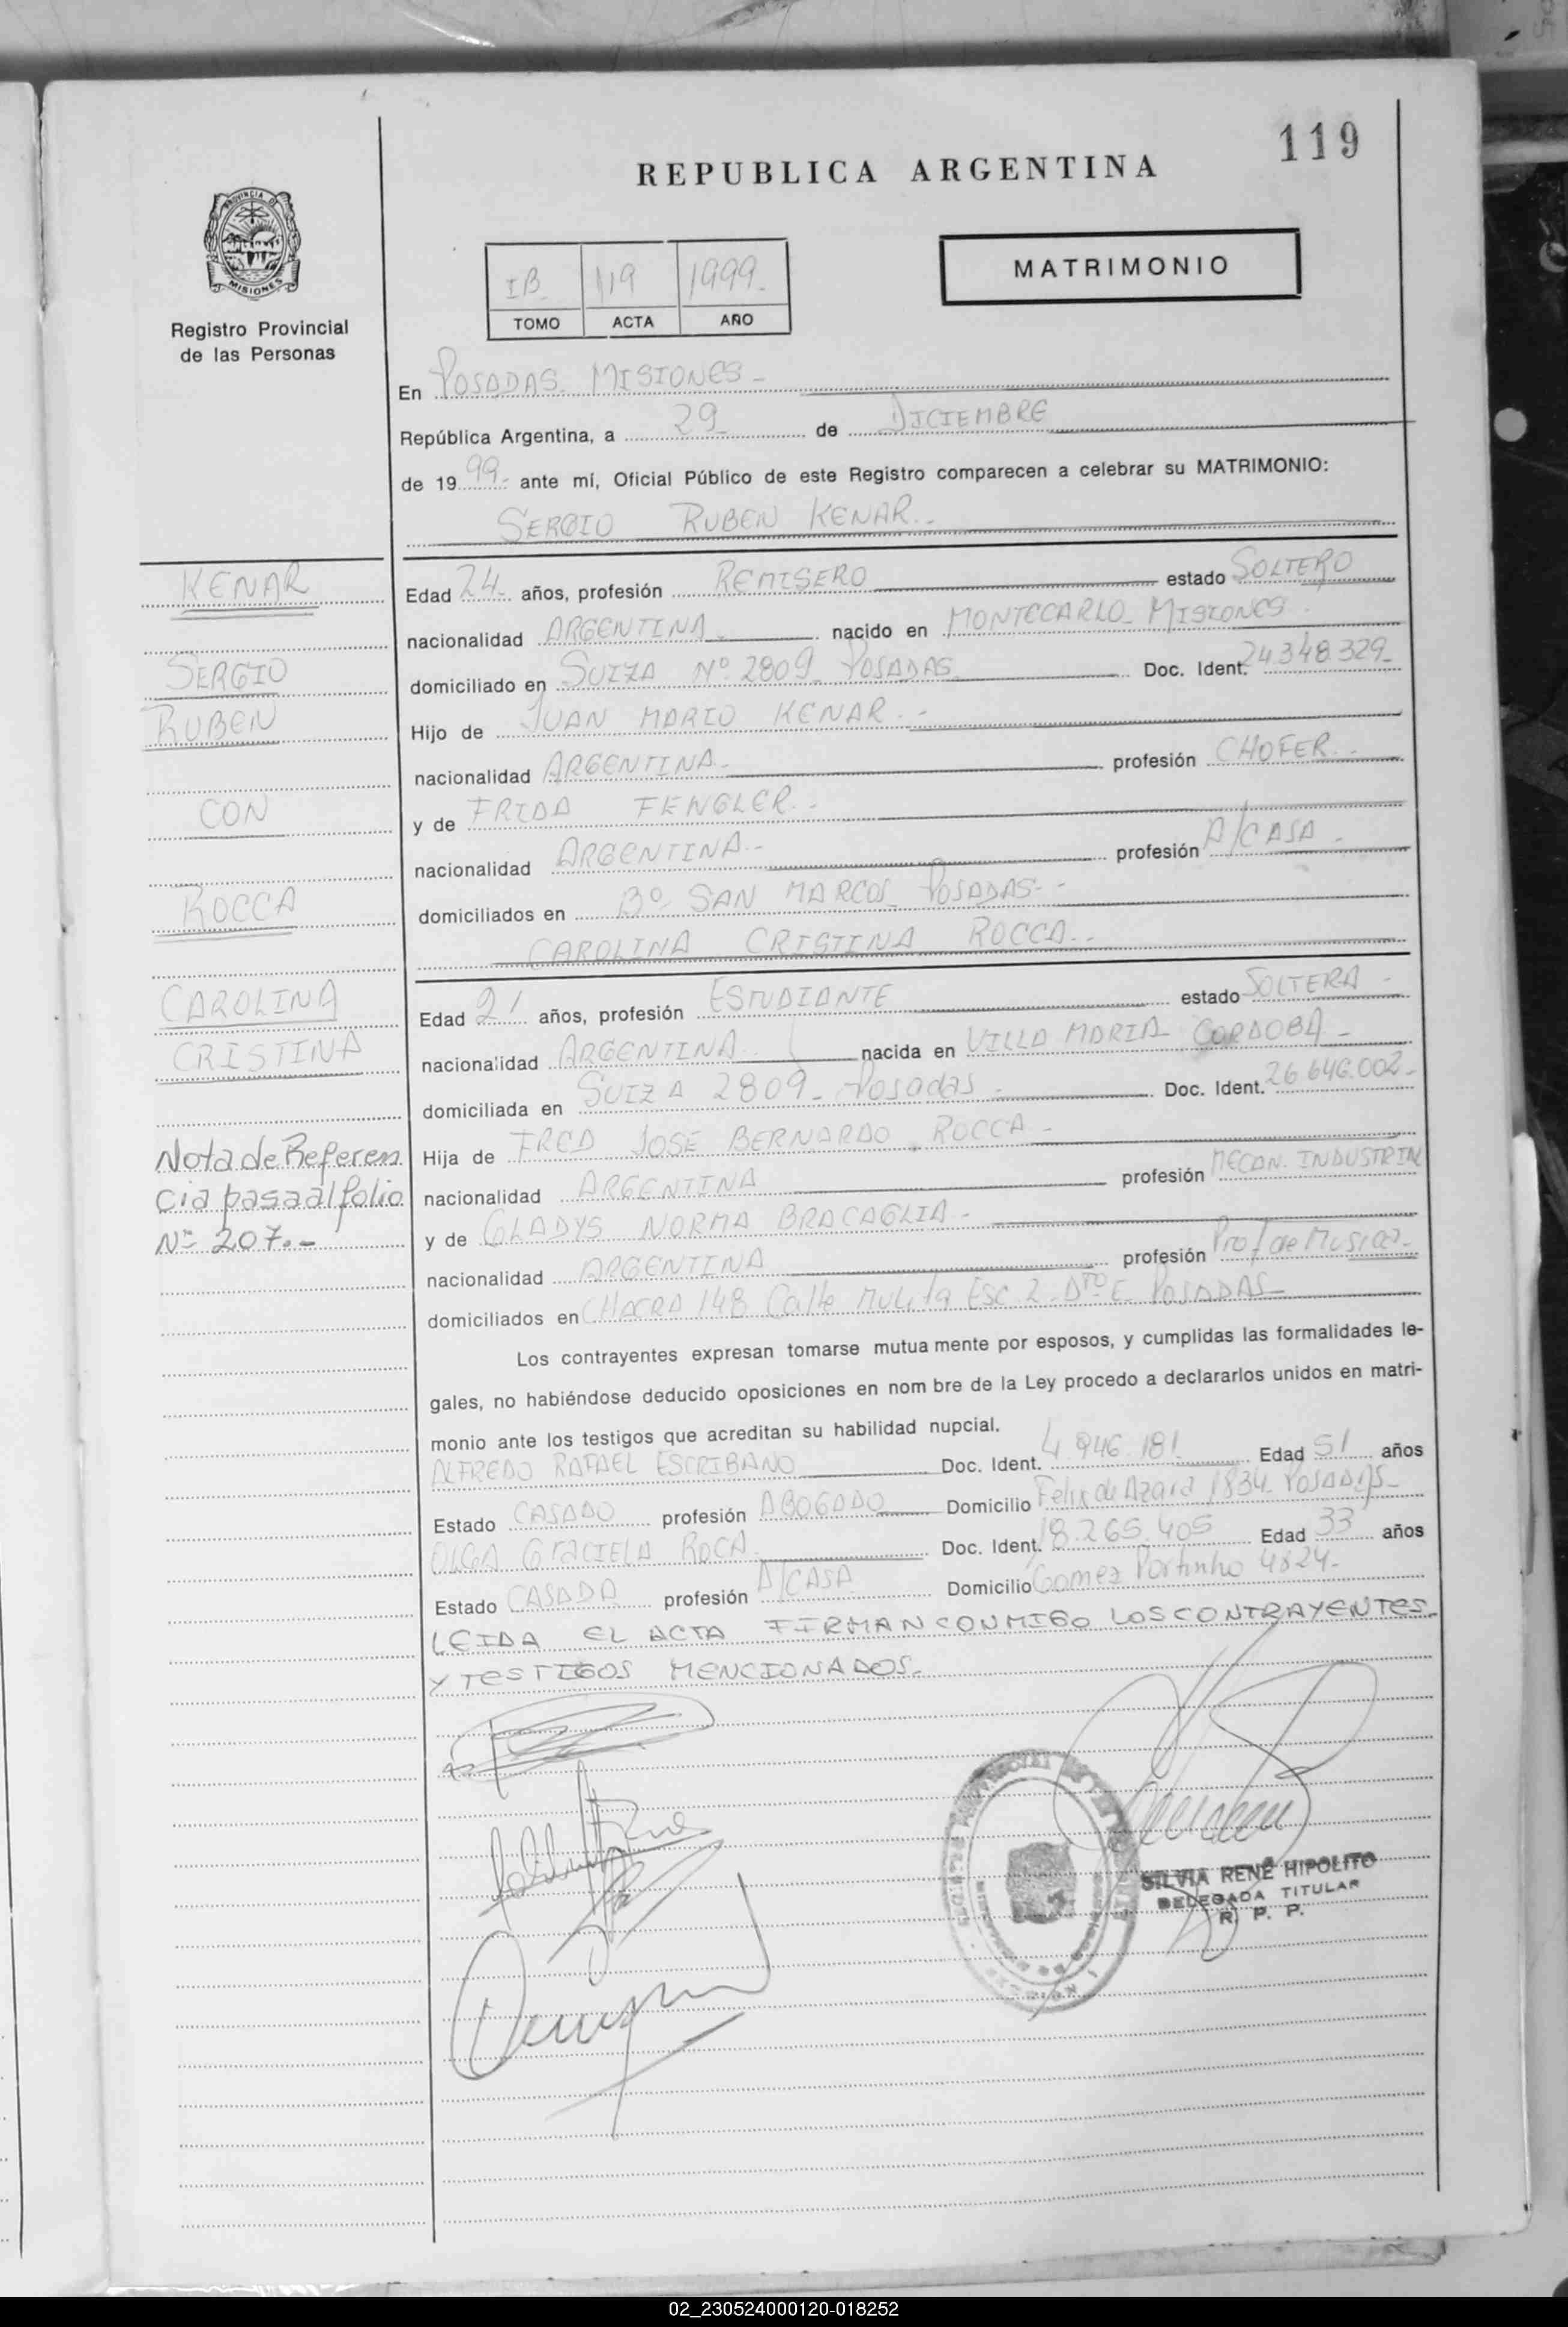 119
REPUBLICA ARGENTINA
PROVINCIA DE
MISIONES
Registro Provincial
de las Personas
IB 119 1999
TOMO ACTA AÑO
MATRIMONIO
En POSADAS MISIONES
República Argentina, a 29 de DICIEMBRE
de 1999 ante mí, Oficial Público de este Registro comparecen a celebrar su MATRIMONIO:
SERGIO RUBEN KENAR
Edad 24 años, profesión REMISERO estado SOLTERO
nacionalidad ARGENTINA nacido en MONTECARLO MISIONES
domiciliado en SUIZA Nº 2809 POSADAS Doc. Ident. 24.348.329
Hijo de JUAN MARIO KENAR
nacionalidad ARGENTINA profesión CHOFER
y de FRIDA FENGLER
nacionalidad ARGENTINA profesión A/CASA
domiciliados en Bº SAN MARCOS POSADAS
CAROLINA CRISTINA ROCCA
Edad 21 años, profesión ESTUDIANTE estado SOLTERA
nacionalidad ARGENTINA nacida en VILLA MARIA CORDOBA
domiciliada en SUIZA 2809 Posadas Doc. Ident. 26.646.002
Hija de FRED JOSE BERNARDO ROCCA
nacionalidad ARGENTINA profesión MECAN. INDUSTRIAL
y de GLADYS NORMA BRACAGLIA
nacionalidad ARGENTINA profesión Prof de Musica
domiciliados en CHACRA 148 Calle Esc 2 Dto E POSADAS
Los contrayentes expresan tomarse mutua mente por esposos, y cumplidas las formalidades le-
gales, no habiéndose deducido oposiciones en nom bre de la Ley procedo a declararlos unidos en matri-
monio ante los testigos que acreditan su habilidad nupcial.
ALFREDO RAFAEL ESCRIBANO Doc. Ident. 4.946.181 Edad 51 años
Estado CASADO profesión ABOGADO Domicilio Felix de Azara 1834 POSADAS
OLGA GRACIELA ROCA Doc. Ident. 18.265.405 Edad 33 años
Estado CASADA profesión A/CASA Domicilio Gomez Portinho 4824
LEIDA EL ACTA FIRMAN CONMIGO LOS CONTRAYENTES
Y TESTIGOS MENCIONADOS.
KENAR
SERGIO
RUBEN
CON
ROCCA
CAROLINA
CRISTINA
Nota de Referen
cia pasa al folio
Nº 207.-
SILVIA RENÉ HIPOLITO
DELEGADA TITULAR
R. P. P.
02_230524000120-018252